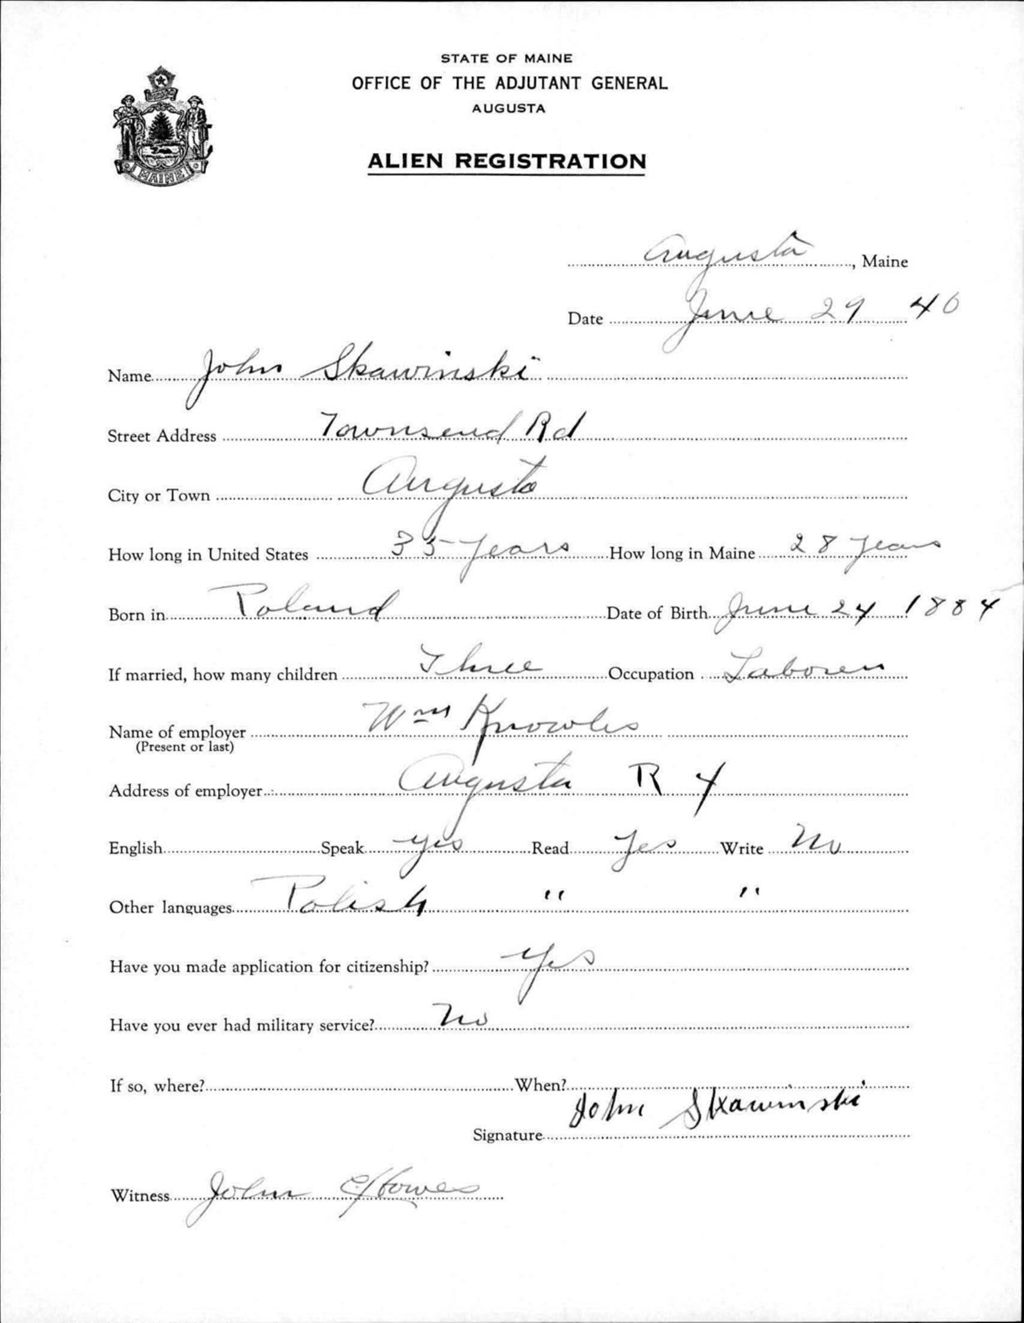 STATE OF MAINE
OFFICE OF THE ADJUTANT GENERAL
AUGUSTA
ALIEN REGISTRATION
MAINE
Augusta, Maine
Date June 29 40
Name John Skawinski
Street Address Townsend Rd
City or Town Augusta
How long in United States 35 years How long in Maine 28 years
Born in Poland Date of Birth June 24 1884
If married, how many children Three Occupation Laborer
Name of employer Wm Knowles
(Present or last)
Address of employer Augusta R 4
English Speak yes Read Yes Write No
Other languages Polish " "
Have you made application for citizenship? Yes
Have you ever had military service? No
If so, where? When?
Signature John Skawinski
Witness John Howes